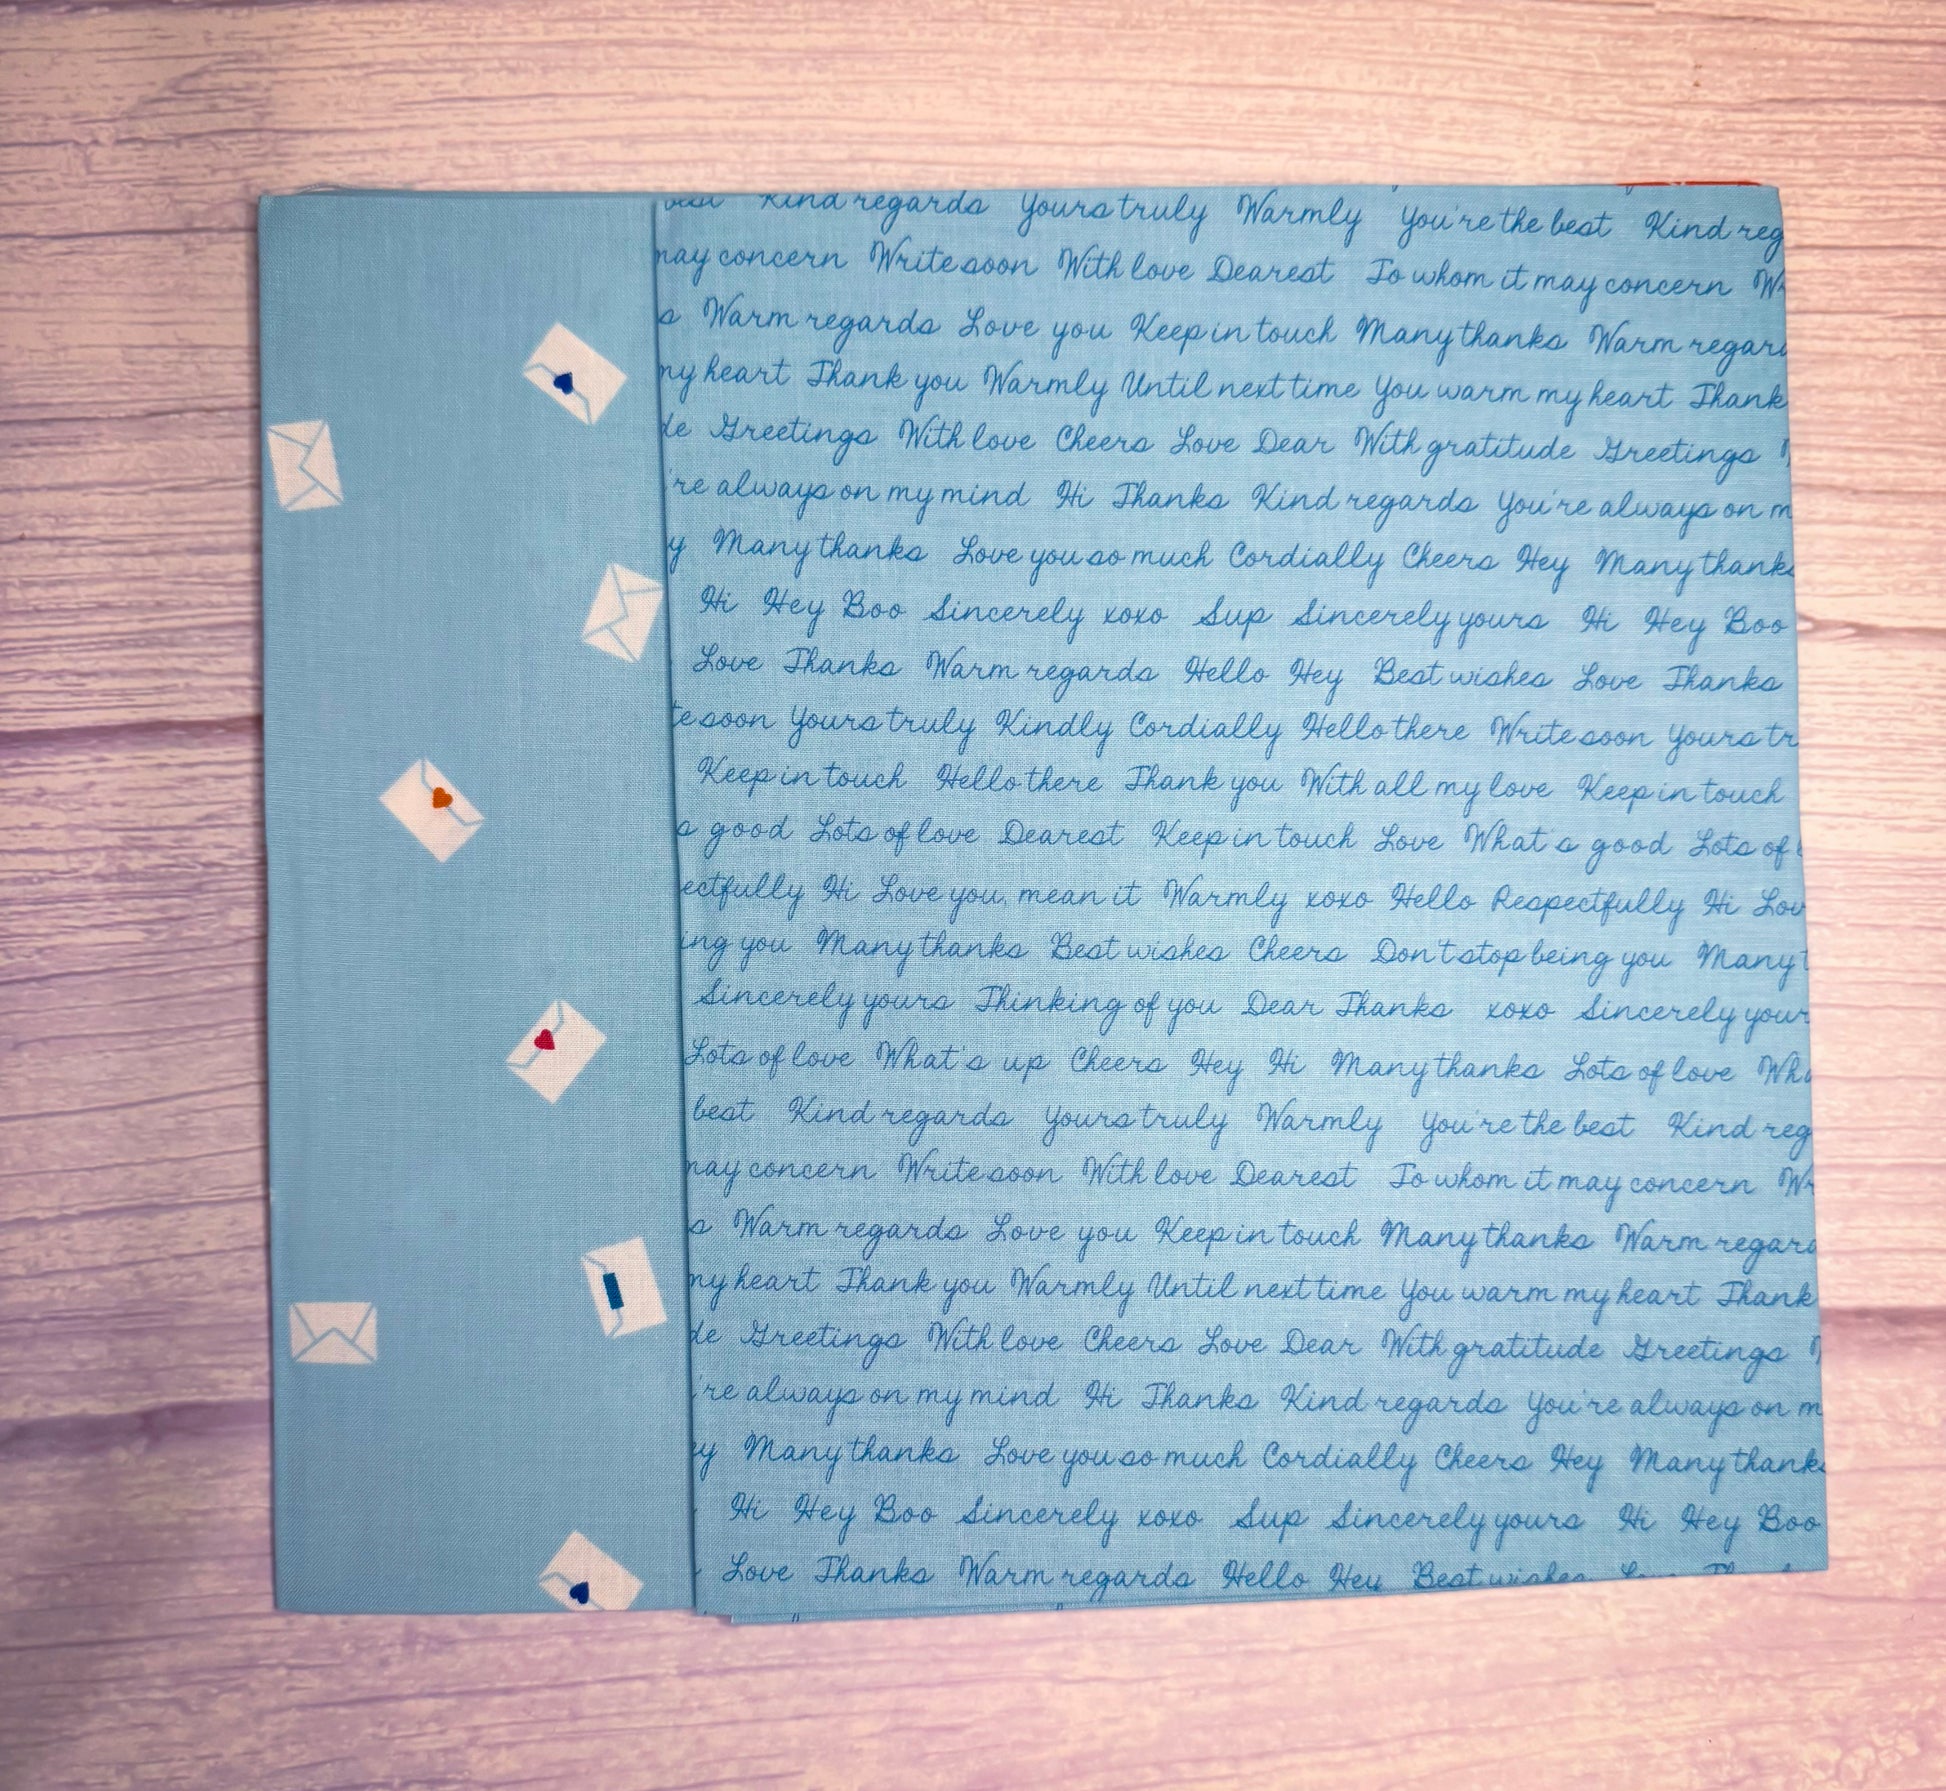 Kind regards Yours truly Warmly You're the best Kind reg
may concern Write soon With love Dearest To whom it may concern Wr
s Warm regards Love you Keep in touch Many thanks Warm regard
my heart Thank you Warmly Until next time You warm my heart Thank
de Greetings With love Cheers Love Dear With gratitude Greetings
're always on my mind Hi Thanks Kind regards You're always on m
y Many thanks Love you so much Cordially Cheers Hey Many thanks
Hi Hey Boo Sincerely xoxo Sup Sincerely yours Hi Hey Boo
Love Thanks Warm regards Hello Hey Best wishes Love Thanks
te soon Yours truly Kindly Cordially Hello there Write soon Yours tr
Keep in touch Hello there Thank you With all my love Keep in touch
s good Lots of love Dearest Keep in touch Love What's good Lots of
ectfully Hi Love you, mean it Warmly xoxo Hello Respectfully Hi Lov
ing you Many thanks Best wishes Cheers Don't stop being you Many t
Sincerely yours Thinking of you Dear Thanks xoxo Sincerely your
Lots of love What's up Cheers Hey Hi Many thanks Lots of love Wha
best Kind regards Yours truly Warmly You're the best Kind reg
may concern Write soon With love Dearest To whom it may concern Wr
s Warm regards Love you Keep in touch Many thanks Warm regard
my heart Thank you Warmly Until next time You warm my heart Thank
de Greetings With love Cheers Love Dear With gratitude Greetings
're always on my mind Hi Thanks Kind regards You're always on m
ey Many thanks Love you so much Cordially Cheers Hey Many thanks
Hi Hey Boo Sincerely xoxo Sup Sincerely yours Hi Hey Boo
Love Thanks Warm regards Hello Hey Best wishes